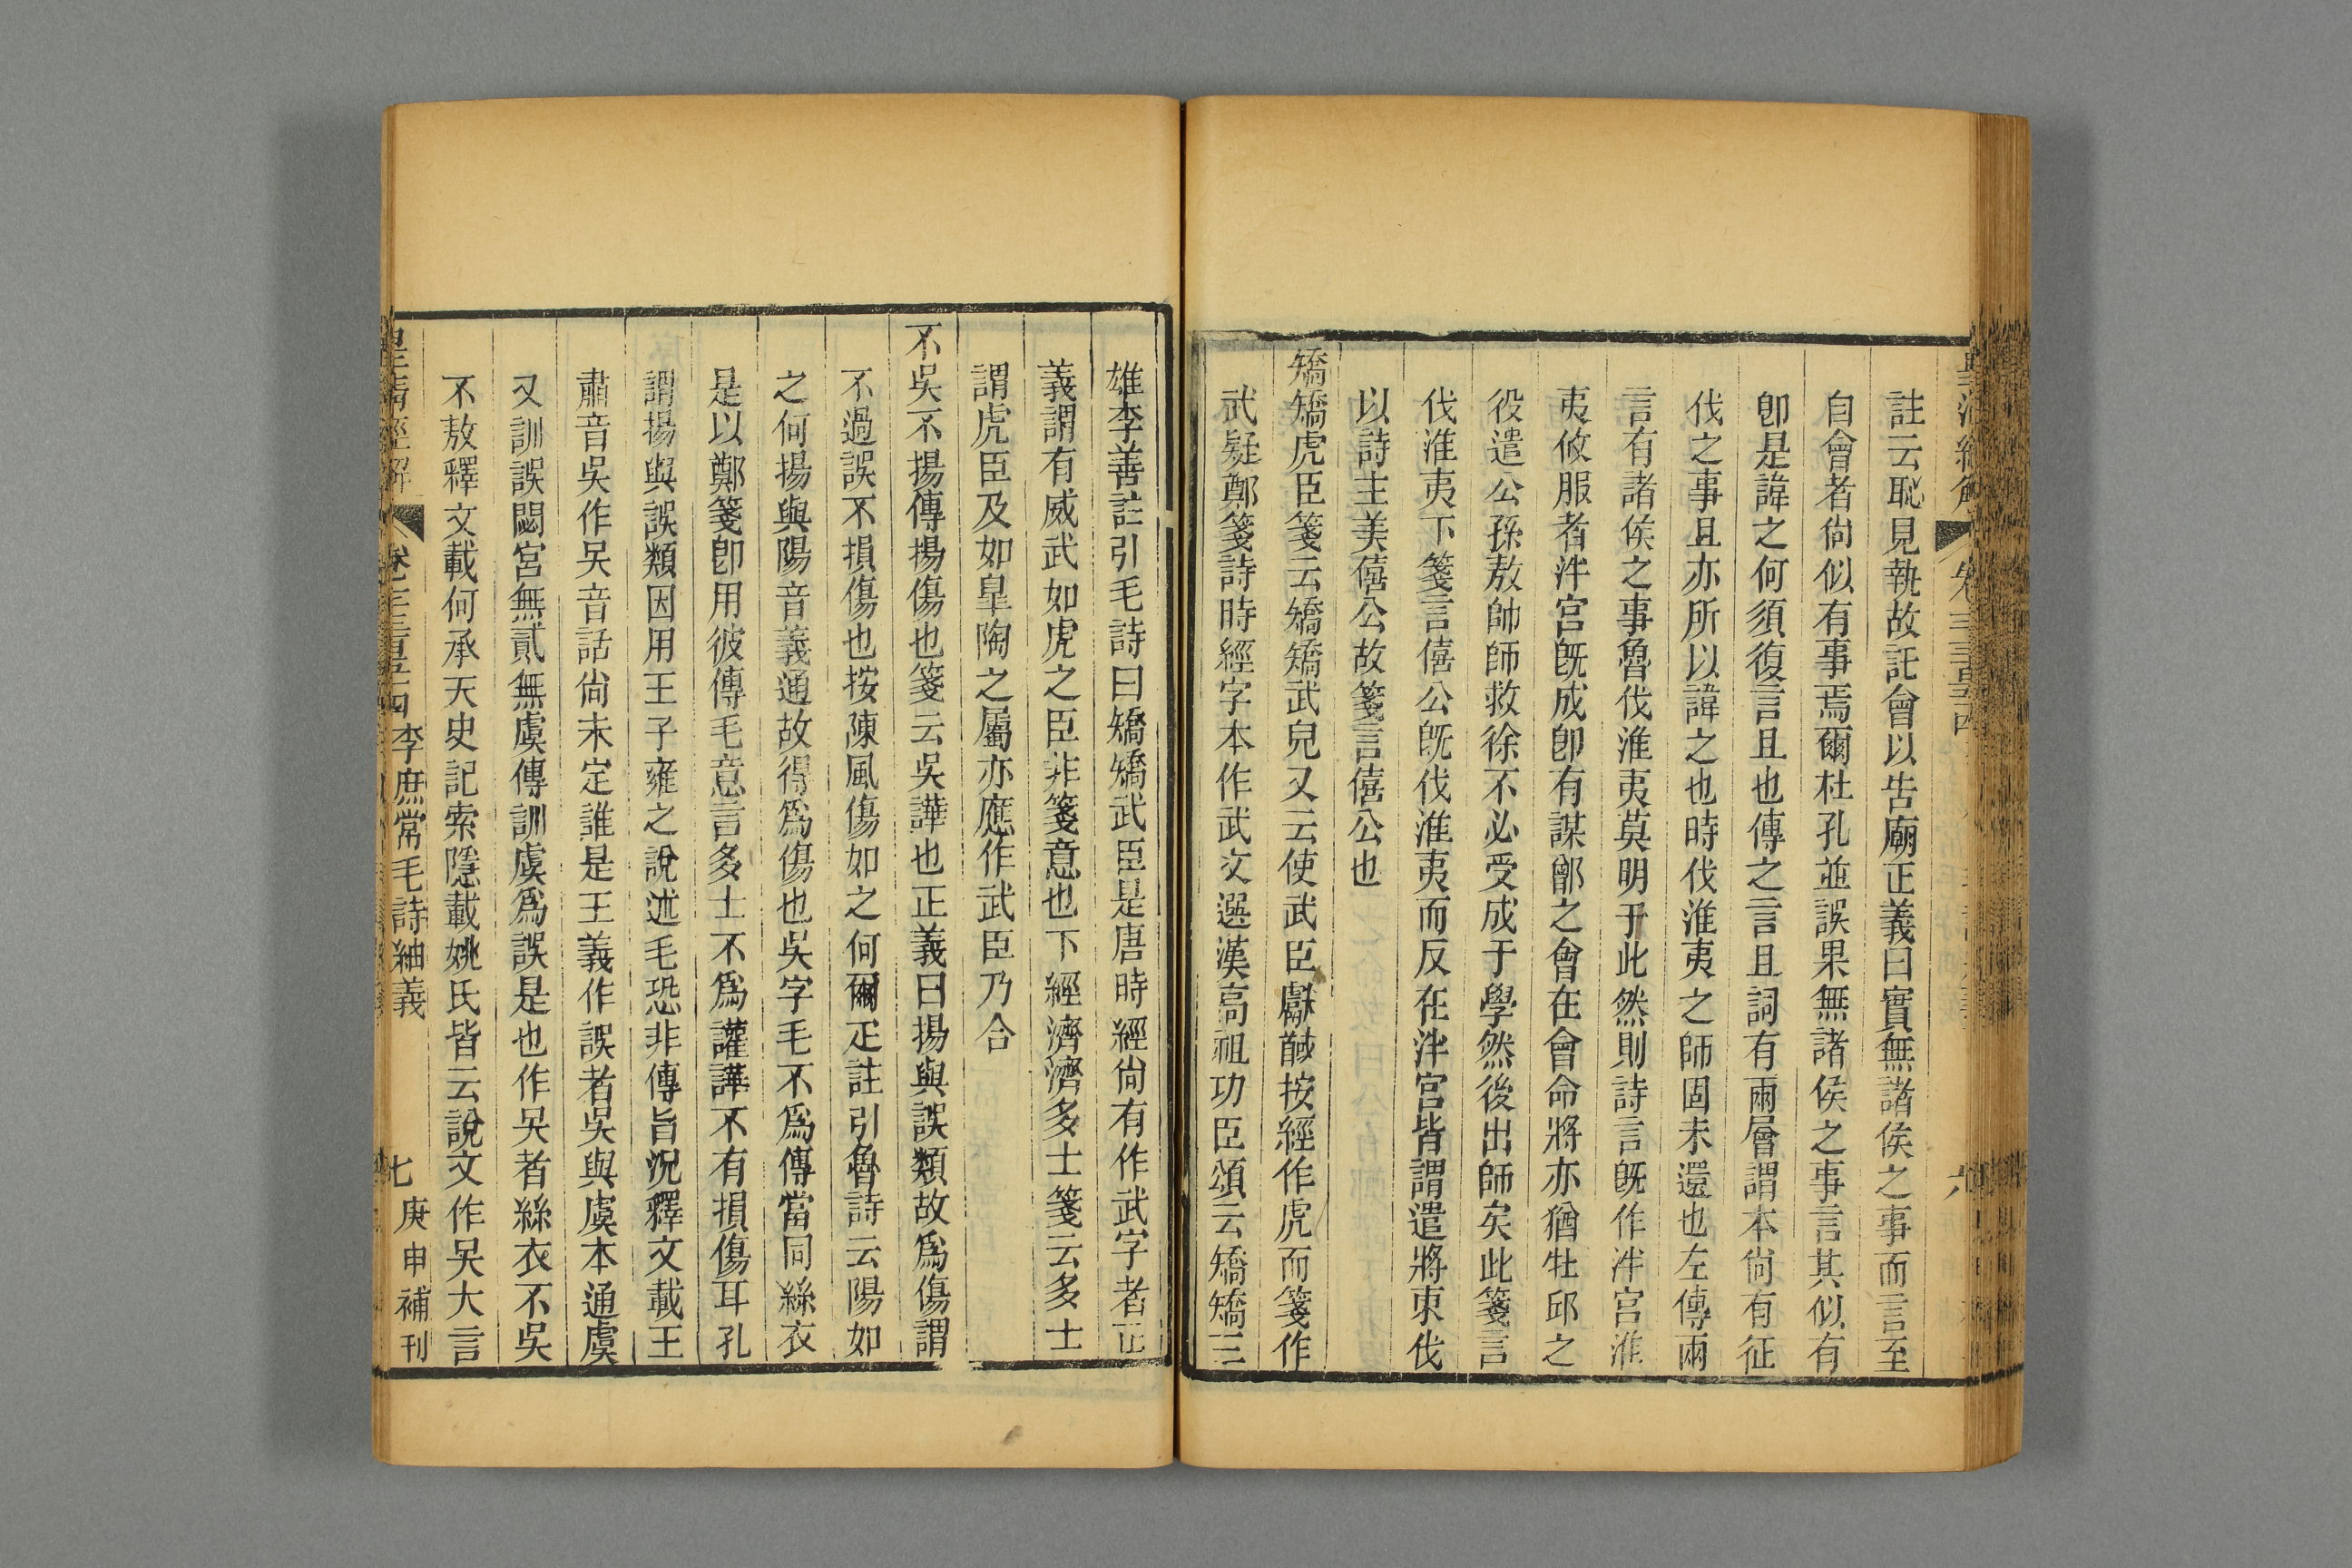 註云恥見執故託會以告廟正義曰實無諸侯之事而言至
自會者尙似有事焉爾杜孔並誤果無諸侯之事言其似有
卽是諱之何須復言且也傳之言且詞有兩層謂本尙有征
伐之事且亦所以諱之也時伐淮夷之師固未還也左傳兩
言有諸侯之事魯伐淮夷莫明于此然則詩言旣作泮宮淮
夷攸服者泮宮旣成卽有謀鄫之會在會命將亦猶牡邱之
役遣公孫敖帥師救徐不必受成于學然後出師矣此箋言
伐淮夷下箋言僖公旣伐淮夷而反在泮宮皆謂遣將東伐
以詩主美僖公故箋言僖公也
矯矯虎臣箋云矯矯武皃又云使武臣獻馘按經作虎而箋作
武疑鄭箋詩時經字本作武文選漢高祖功臣頌云矯矯三
雄李善註引毛詩曰矯矯武臣是唐時經尙有作武字者正
義謂有威武如虎之臣非箋意也下經濟濟多士箋云多士
謂虎臣及如臯陶之屬亦應作武臣乃合
不吳不揚傳揚傷也箋云吳譁也正義曰揚與誤類故爲傷謂
不過誤不損傷也按陳風傷如之何爾疋註引魯詩云陽如
之何揚與陽音義通故得爲傷也吳字毛不爲傳當同絲衣
是以鄭箋卽用彼傳毛意言多士不爲讙譁不有損傷耳孔
謂揚與誤類因用王子雍之說述毛恐非傳旨況釋文載王
肅音吳作吴音話尙未定誰是王義作誤者吳與虞本通虞
又訓誤閟宮無貳無虞傳訓虞爲誤是也作吴者絲衣不吳
不敖釋文載何承天史記索隱載姚氏皆云說文作吴大言
皇清經解 卷千三百五十四 李庶常毛詩紬義 七 庚申補刊